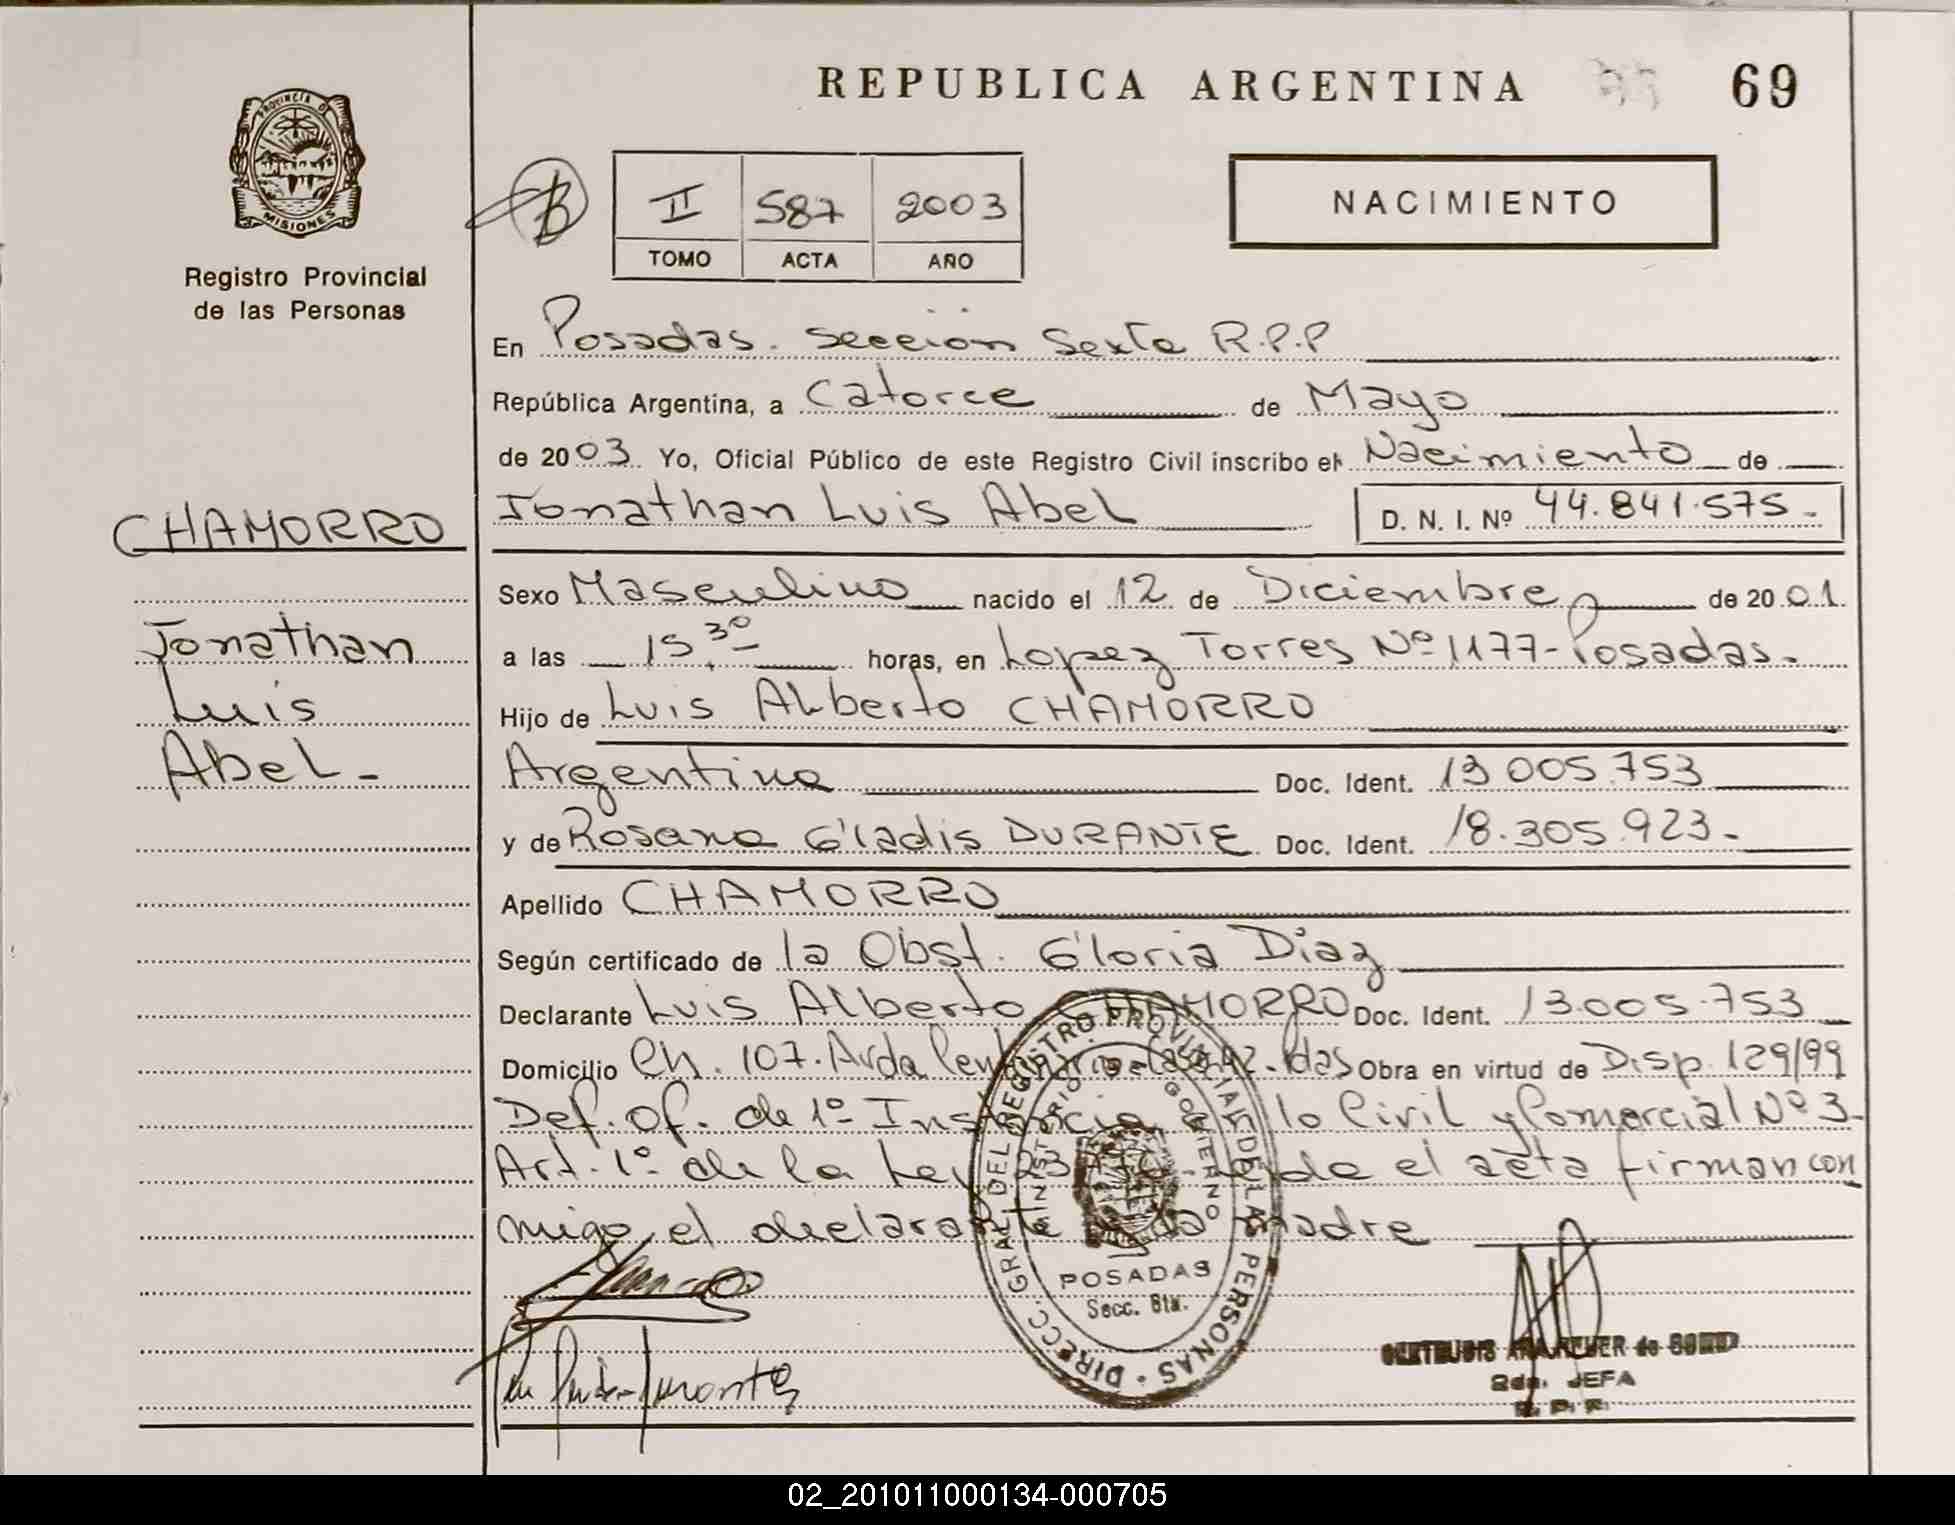 REPUBLICA ARGENTINA 69
PROVINCIA DE MISIONES
Registro Provincial
de las Personas
II 587 2003
TOMO ACTA AÑO
NACIMIENTO
En Posadas. Sección Sexta R.P.P
República Argentina, a Catorce de Mayo
de 2003 Yo, Oficial Público de este Registro Civil inscribo el Nacimiento de
Jonathan Luis Abel D. N. I. Nº 44.841.575-
CHAMORRO
Jonathan
Luis
Abel-
Sexo Masculino nacido el 12 de Diciembre de 2001
a las 15 30 horas, en Lopez Torres Nº 1177-Posadas.
Hijo de Luis ALberto CHAMORRO
Argentina Doc. Ident. 13 005.753
y de Rosana Gladis DURANTE Doc. Ident. 18.305.923-
Apellido CHAMORRO
Según certificado de la Obst. Gloria Diaz
Declarante Luis Alberto CHAMORRO Doc. Ident. 13.005.753
Domicilio Ch. 107. Avda Obra en virtud de Disp. 129/99
Def. Of. de 1º Instancia en lo Civil y Comercial Nº 3-
Art. 1º de la Ley el acta firman con
migo el declarante y la madre
DIRECC. GRAL DEL REGISTRO PROVINCIAL DE LAS PERSONAS
MINISTERIO DE GOBIERNO
POSADAS
Secc. 6ta.
2da. JEFA
R. P. P.
02_201011000134-000705